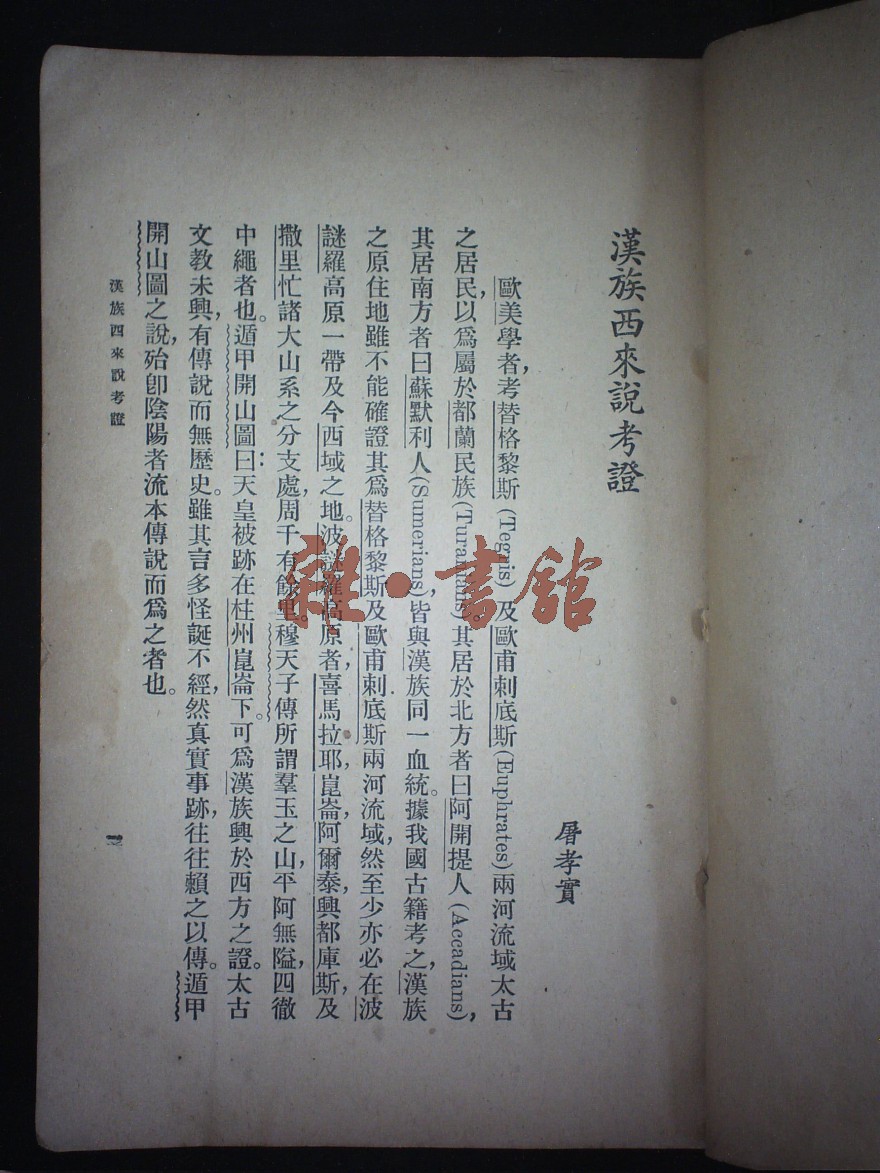 漢族西來說考證
屠孝實
歐美學者,考替格黎斯(Tegriis)及歐甫刺底斯(Euphrates)兩河流域太古
之居民,以為屬於都蘭民族(Turanians)。其居於北方者曰阿開提人(Accadians),
其居南方者曰蘇默利人(Sumerians),皆與漢族同一血統。據我國古籍考之,漢族
之原住地雖不能確證其為替格黎斯及歐甫刺底斯兩河流域,然至少亦必在波
謎羅高原一帶及今西域之地。波謎羅高原者,喜馬拉耶,崑崙,阿爾泰,興都庫斯,及
撒里忙諸大山系之分支處,周千有餘里。穆天子傳所謂羣玉之山,平阿無隘,四徹
中繩者也。遁甲開山圖曰:天皇被跡在柱州崑崙下。可為漢族興於西方之證。太古
文教未興,有傳說而無歷史。雖其言多怪誕不經,然真實事跡,往往賴之以傳。遁甲
開山圖之說,殆卽陰陽者流本傳說而為之者也。
漢族西來說考證
一
雜·書館